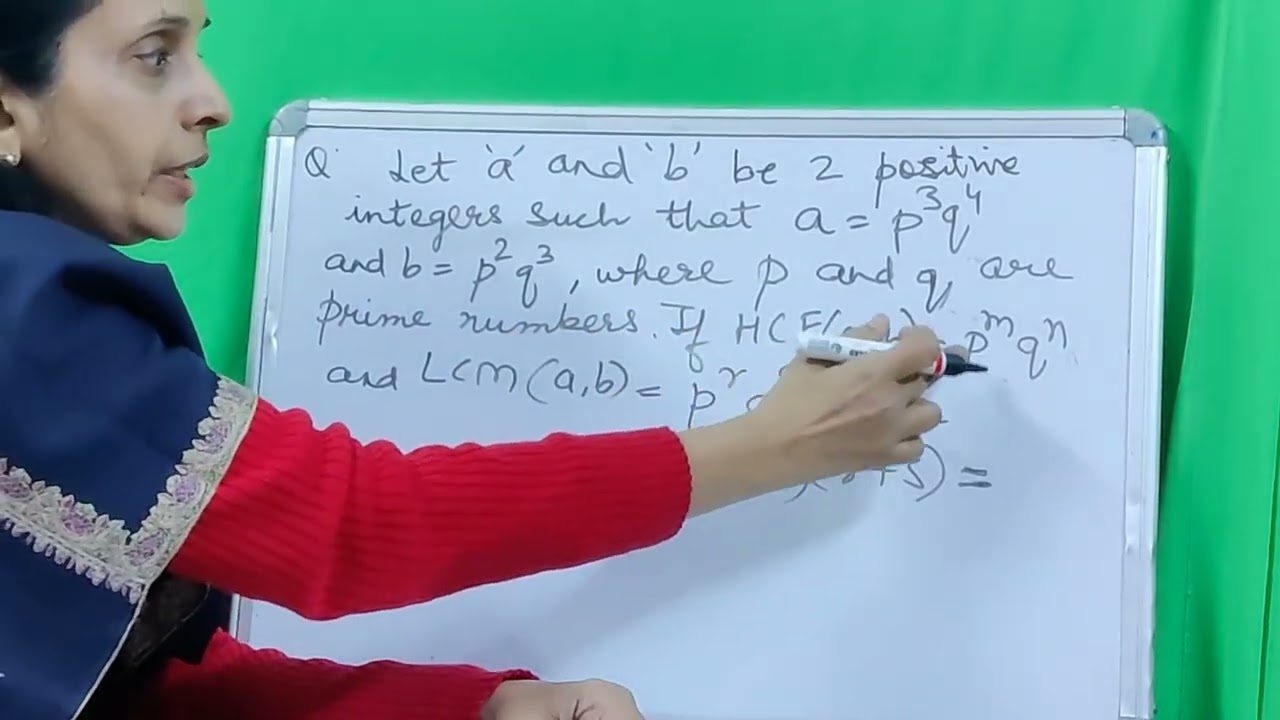 Q. Let 'a' and 'b' be 2 positive
integers such that a = p³q⁴
and b = p²q³, where p and q are
prime numbers. If HCF( ) = pᵐqⁿ
and LCM(a,b) = pʳ
)( +s) =